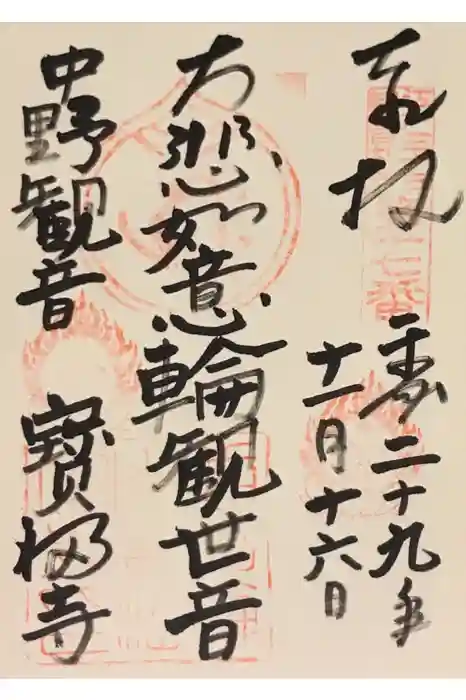 奉拝
平成二十九年
十一月十六日
大悲如意輪観世音
中野観音
寳福寺